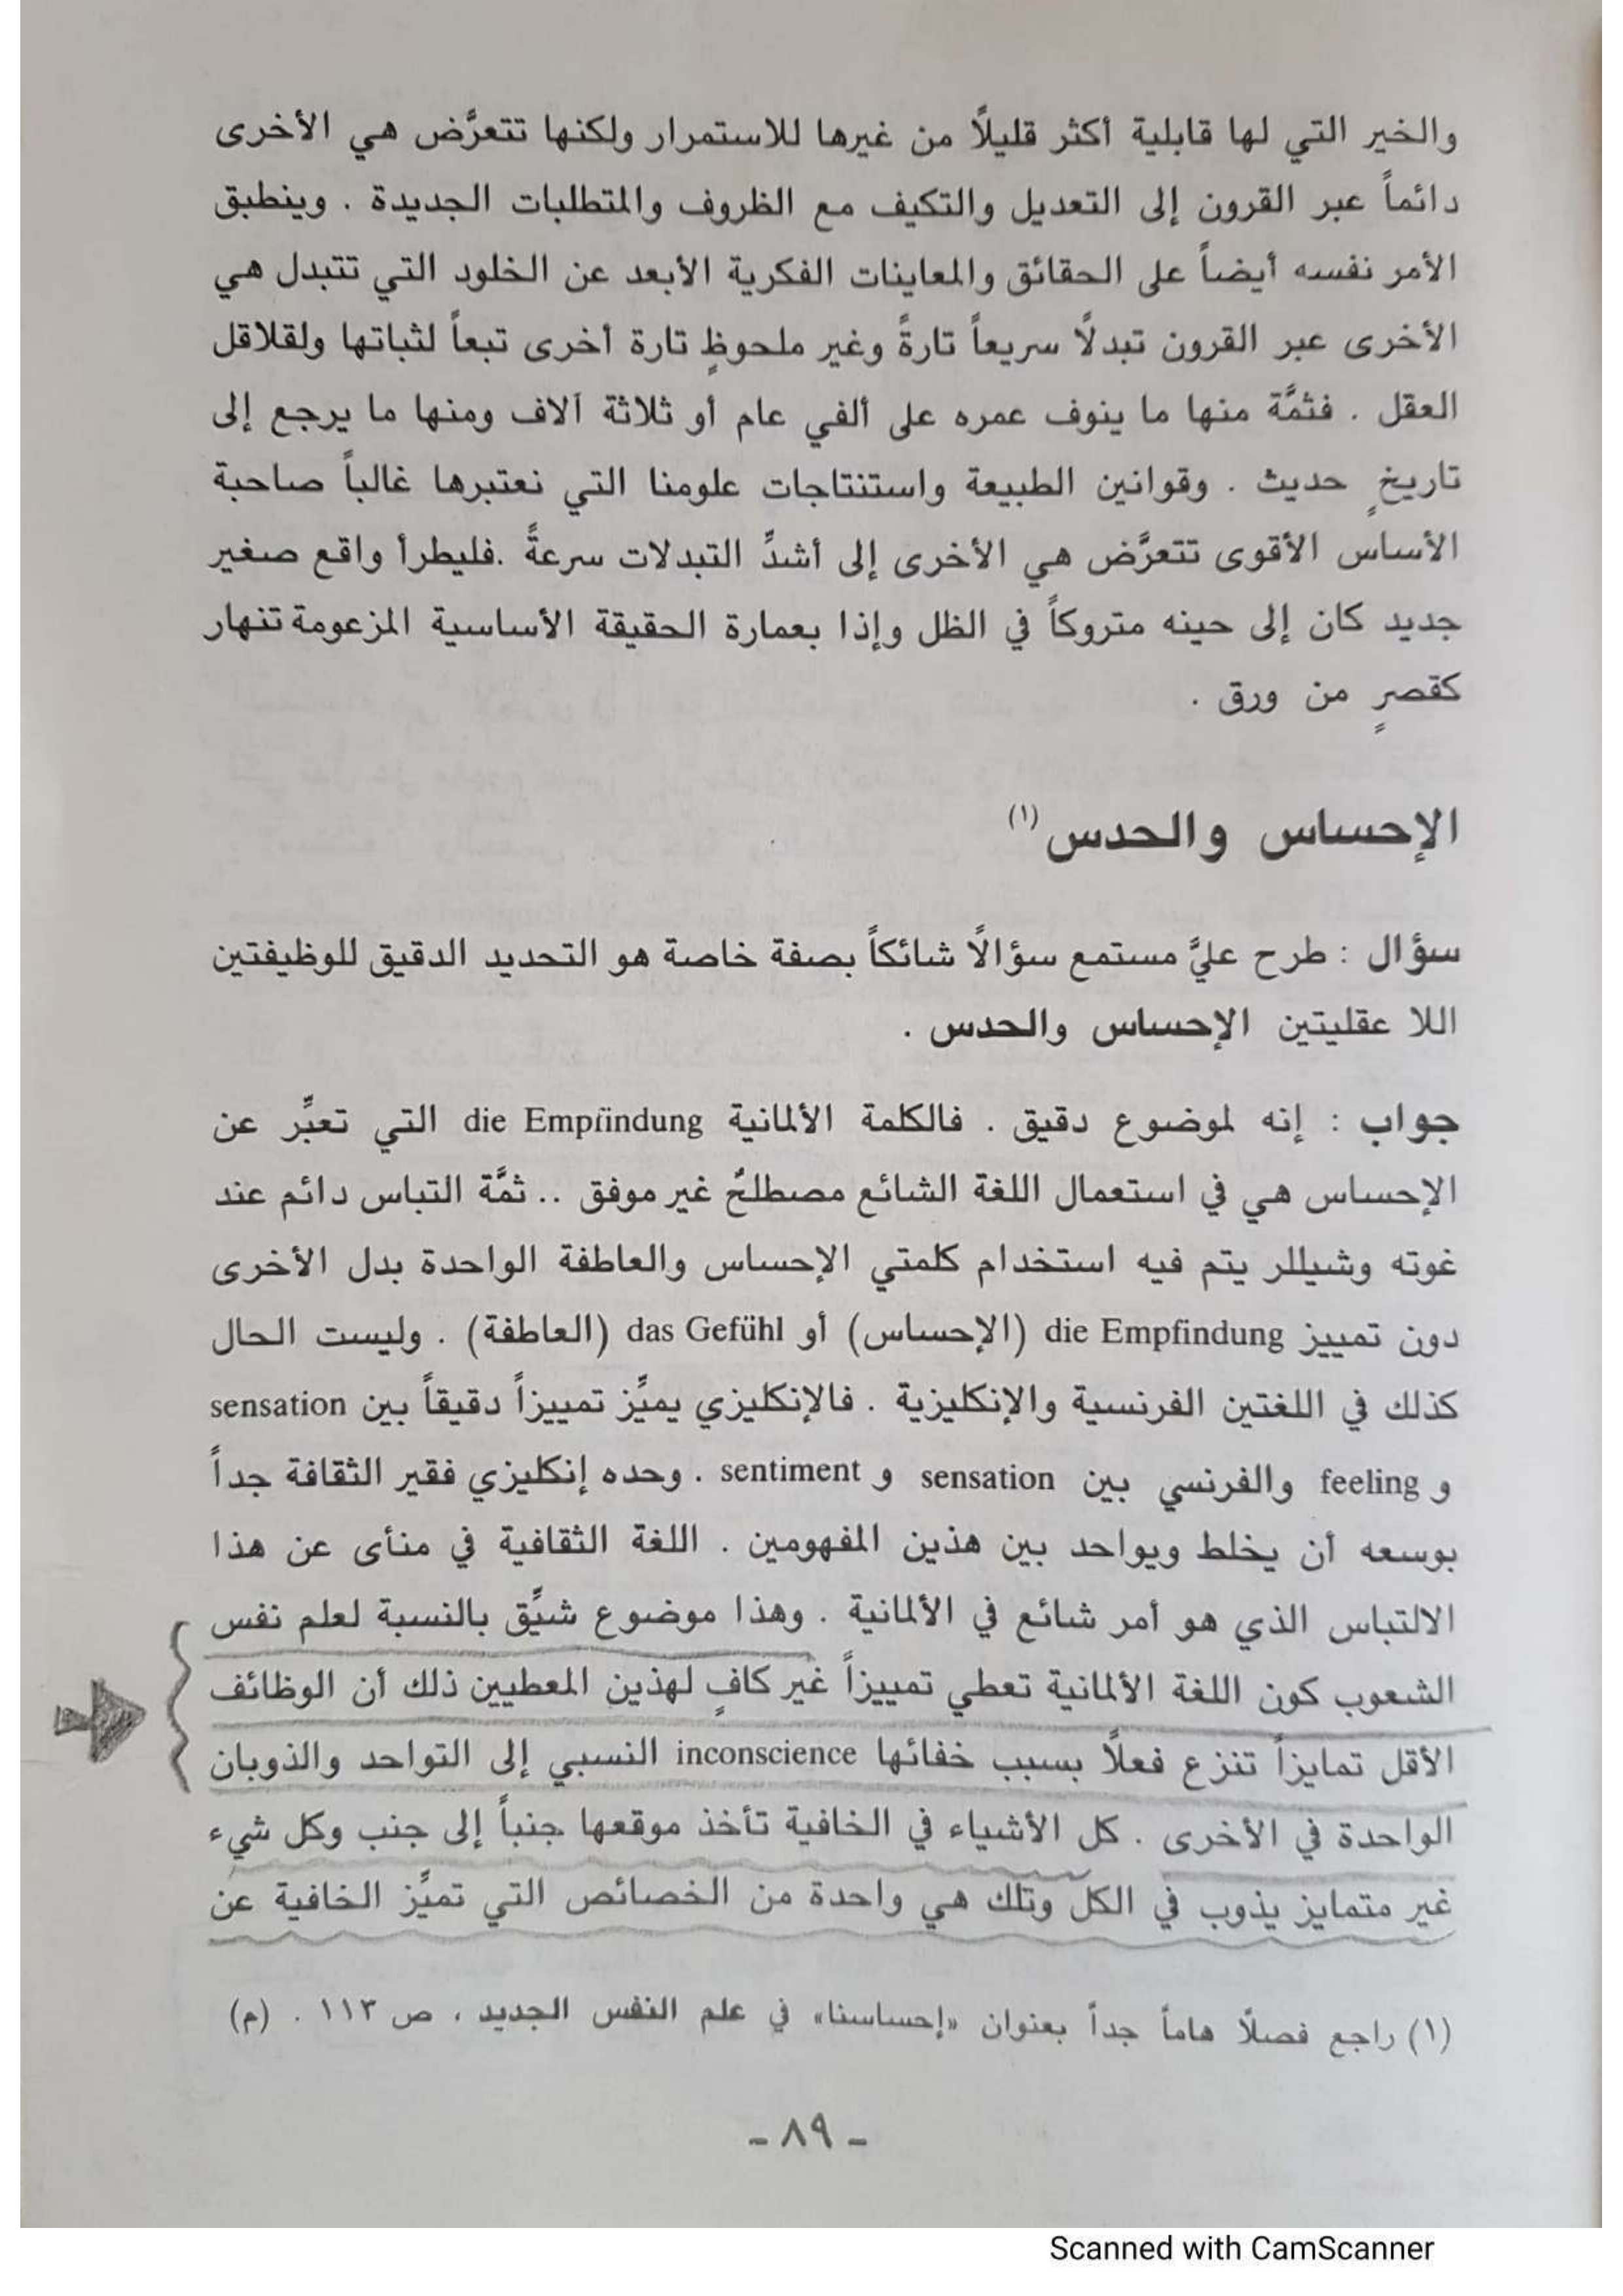 والخير التي لها قابلية أكثر قليلاً من غيرها للاستمرار ولكنها تتعرَّض هي الأخرى
دائماً عبر القرون إلى التعديل والتكيف مع الظروف والمتطلبات الجديدة . وينطبق
الأمر نفسه أيضاً على الحقائق والمعاينات الفكرية الأبعد عن الخلود التي تتبدل هي
الأخرى عبر القرون تبدلًا سريعاً تارةً وغير ملحوظٍ تارة أخرى تبعاً لثباتها ولقلاقل
العقل . فثمَّة منها ما ينوف عمره على ألفي عام أو ثلاثة آلاف ومنها ما يرجع إلى
تاريخٍ حديث . وقوانين الطبيعة واستنتاجات علومنا التي نعتبرها غالباً صاحبة
الأساس الأقوى تتعرَّض هي الأخرى إلى أشدِّ التبدلات سرعةً .فليطرأ واقع صغير
جديد كان إلى حينه متروكاً في الظل وإذا بعمارة الحقيقة الأساسية المزعومة تنهار
كقصرٍ من ورق .
الإحساس والحدس (١)
سؤال : طرح عليَّ مستمع سؤالًا شائكاً بصفة خاصة هو التحديد الدقيق للوظيفتين
اللا عقليتين الإحساس والحدس .
جواب : إنه لموضوع دقيق . فالكلمة الألمانية die Empfindung التي تعبِّر عن
الإحساس هي في استعمال اللغة الشائع مصطلحٌ غير موفق .. ثمَّة التباس دائم عند
غوته وشيللر يتم فيه استخدام كلمتي الإحساس والعاطفة الواحدة بدل الأخرى
دون تمييز die Empfindung (الإحساس) أو das Gefühl (العاطفة) . وليست الحال
كذلك في اللغتين الفرنسية والإنكليزية . فالإنكليزي يميِّز تمييزاً دقيقاً بين sensation
و feeling والفرنسي بين sensation و sentiment . وحده إنكليزي فقير الثقافة جداً
بوسعه أن يخلط ويواحد بين هذين المفهومين . اللغة الثقافية في منأى عن هذا
الالتباس الذي هو أمر شائع في الألمانية . وهذا موضوع شيِّق بالنسبة لعلم نفس
الشعوب كون اللغة الألمانية تعطي تمييزاً غير كافٍ لهذين المعطيين ذلك أن الوظائف
الأقل تمايزاً تنزع فعلًا بسبب خفائها inconscience النسبي إلى التواحد والذوبان
الواحدة في الأخرى . كل الأشياء في الخافية تأخذ موقعها جنباً إلى جنب وكل شيء
غير متمايز يذوب في الكل وتلك هي واحدة من الخصائص التي تميِّز الخافية عن
(١) راجع فصلًا هاماً جداً بعنوان «إحساسنا» في علم النفس الجديد ، ص ١١٣ . (م)
- ٨٩ -
Scanned with CamScanner